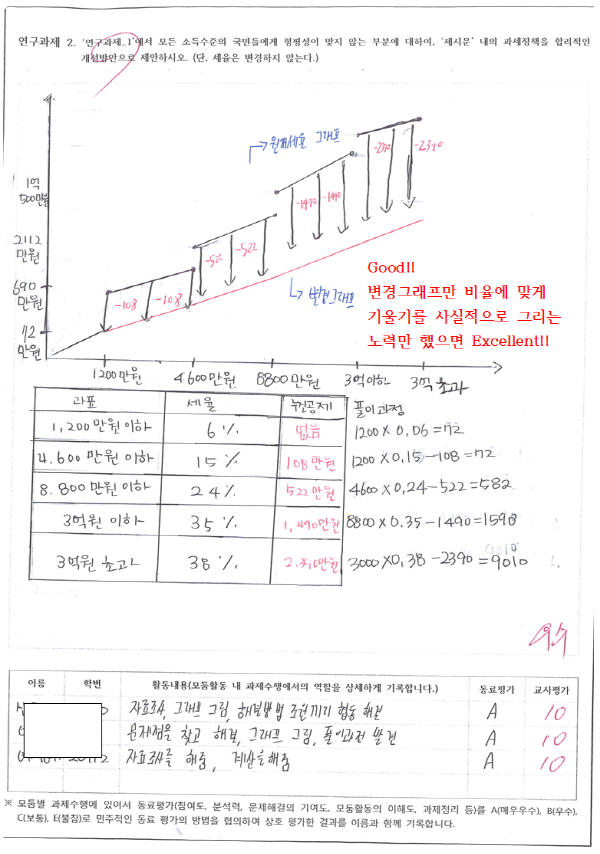 연구과제 2. '연구과제_1'에서 모든 소득수준의 국민들에게 형평성이 맞지 않는 부분에 대하여, '제시문' 내의 과세정책을 합리적인
개선방안으로 제안하시오. (단, 세율은 변경하지 않는다.)
원래세율 그래프
-2390
-2390
1억
500만원
-1490
-1490
2112
만원
-522
-522
Good!!
변경그래프만 비율에 맞게
기울기를 사실적으로 그리는
노력만 했으면 Excellent!!
690
만원
-108
-108
변경그래프
72
만원
1200만원 4600만원 8800만원 3억이하 3억 초과
과표 세율 누진공제 풀이과정
1,200만원 이하 6% 없음 1200×0.06=72
4.600만원 이하 15% 108만원 1200×0.15-108=72
8.800만원 이하 24% 522만원 4600×0.24-522=582
3억원 이하 35% 1,490만원 8800×0.35-1490=1590
3억원 초과 38% 2.390만원 3000×0.38-2390=9010
우수
이름 학번 활동내용(모둠활동 내 과제수행에서의 역할을 상세하게 기록합니다.) 동료평가 교사평가
자료조사, 그래프 그림, 해결방법 조원끼리 협동 해결 A 10
문제점을 찾고 해결, 그래프 그림, 풀이과정 발견 A 10
자료조사를 해줌, 계산을해줌 A 10
※ 모둠별 과제수행에 있어서 동료평가(참여도, 분석력, 문제해결의 기여도, 모둠활동의 이해도, 과제정리 등)를 A(매우우수), B(우수),
C(보통), E(불참)로 민주적인 동료 평가의 방법을 협의하여 상호 평가한 결과를 이름과 함께 기록합니다.